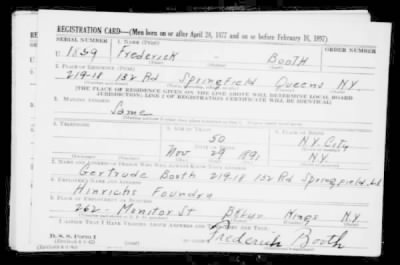 REGISTRATION CARD—(Men born on or after April 28, 1877 and on or before February 16, 1897)
SERIAL NUMBER 1. NAME (Print) ORDER NUMBER
U 1839 Frederick - BOOTH
2. PLACE OF RESIDENCE (Print)
219-18 132 Rd Springfield Queens N.Y.
[THE PLACE OF RESIDENCE GIVEN ON THE LINE ABOVE WILL DETERMINE LOCAL BOARD
JURISDICTION; LINE 2 OF REGISTRATION CERTIFICATE WILL BE IDENTICAL]
3. MAILING ADDRESS
Same
4. TELEPHONE 5. AGE IN YEARS 6. PLACE OF BIRTH
50 N.Y. City
Nov 29 1891 N.Y.
7. NAME AND ADDRESS OF PERSON WHO WILL ALWAYS KNOW YOUR ADDRESS
Gertrude Booth 219-18 132 Rd Springfield
8. EMPLOYER'S NAME AND ADDRESS
Hinrichs Foundry
9. PLACE OF EMPLOYMENT OR BUSINESS
262 - Monitor St Bklyn Kings N.Y
I AFFIRM THAT I HAVE VERIFIED ABOVE ANSWERS AND THAT THEY ARE TRUE.
D. S. S. Form 1
Frederick Booth